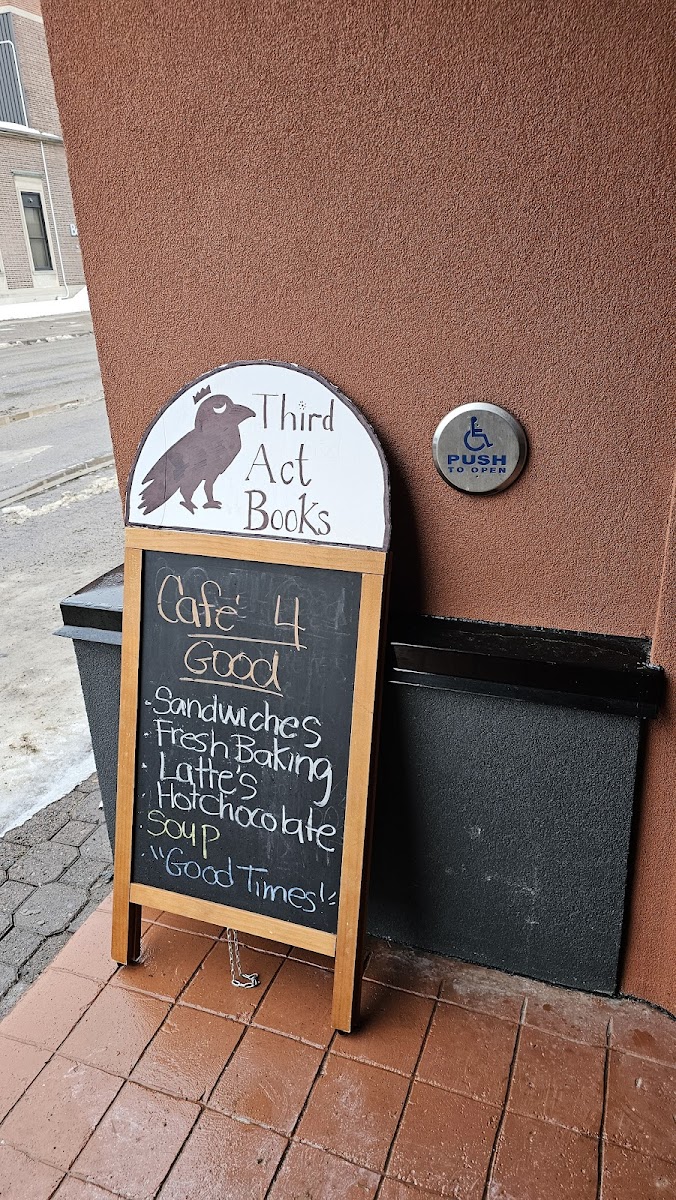 Third
Act
Books
PUSH
TO OPEN
Café 4
Good
- Sandwiches
- Fresh Baking
- Latte's
- Hotchocolate
- Soup
- "Good Times"